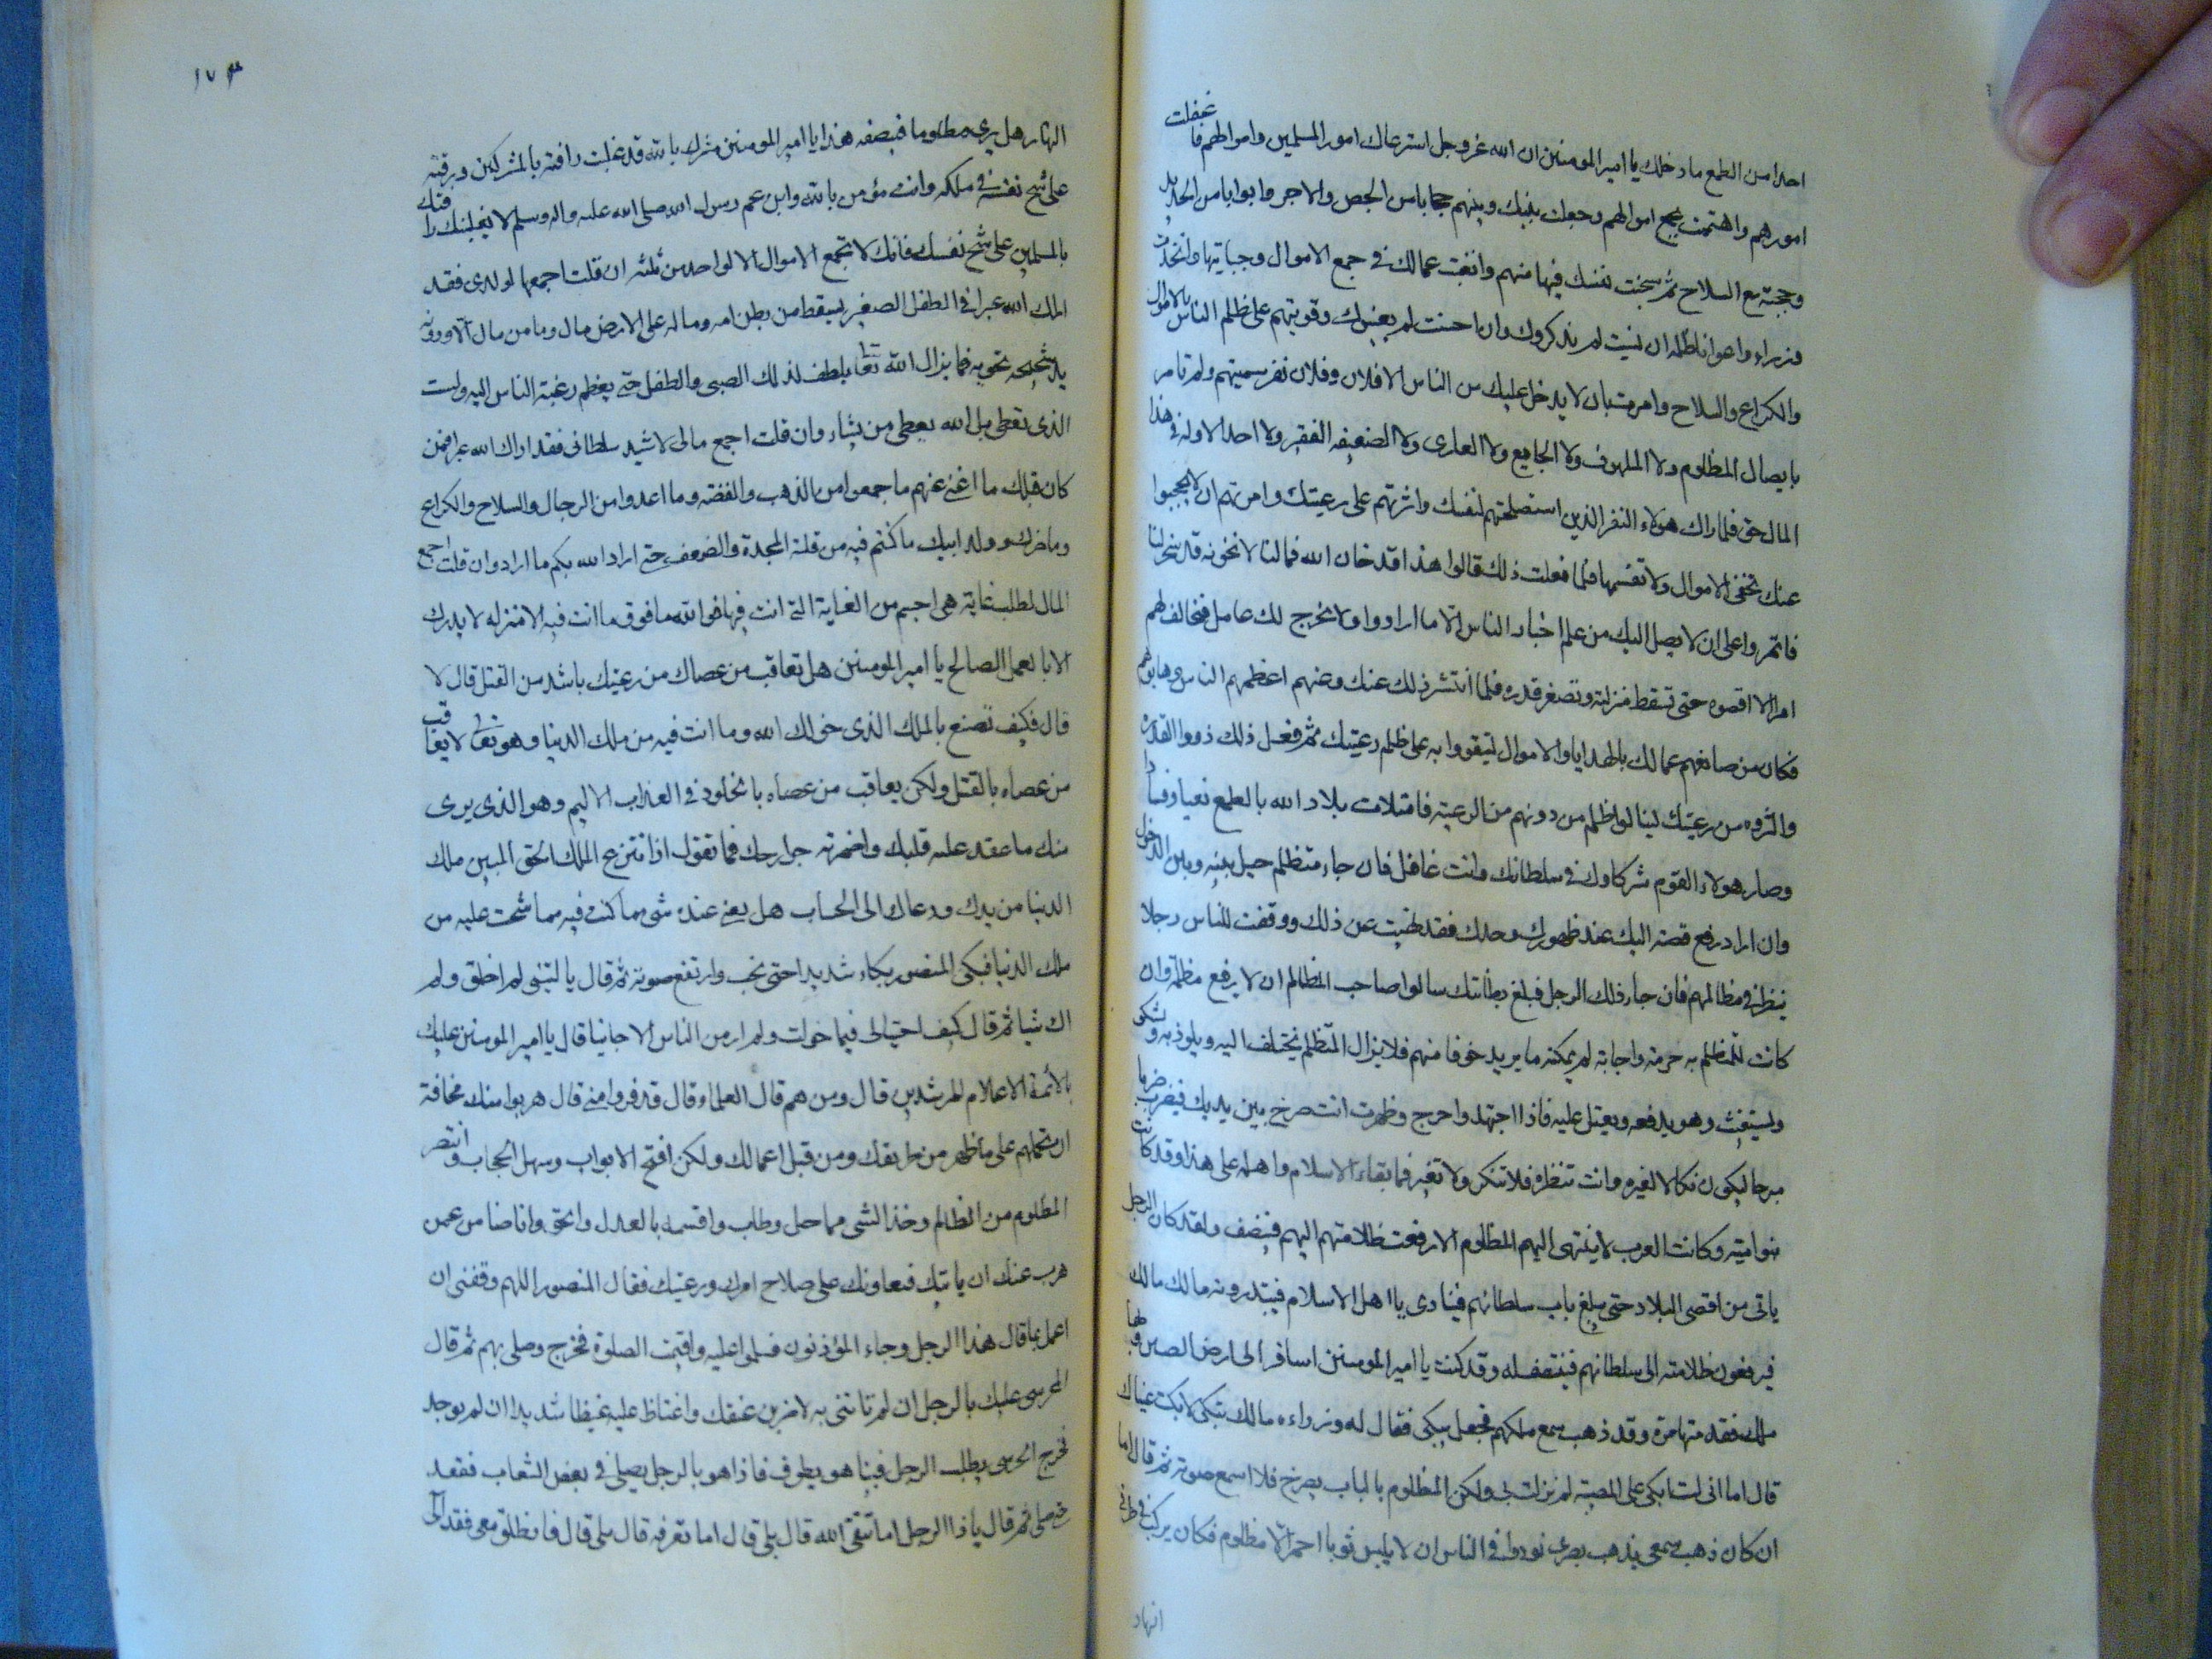 احدا من الطمع ما دخلك يا امير المومنين ان الله عز وجل استرعاك امور المسلمين واموالهم فاغفلت
امورهم واهتممت بجمع اموالهم وجعلت بينك وبينهم حجابا من الجص والاجر وابوابا من الحديد
وحجبة مع السلاح ثم سجنت نفسك فيها منهم وانبعث عمالك في جمع الاموال وجبايتها واتخذت
وزراء واعوانا ظلمة ان نسيت لم يذكروك وان احسنت لم يعينوك وقويتهم على ظلم الناس بالاموال
والكراع والسلاح وامرت بان لا يدخل عليك من الناس الا فلان وفلان نفر سميتهم ولم تامر
بايصال المظلوم ولا الملهوف ولا الجايع ولا العارى ولا الضعيف الفقير ولا احد الا وله في هذا
المال حق فلما راك هولاء النفر الذين استصلحتهم لنفسك واثرتهم على رعيتك وامرتهم ان لا يحجبوا
عنك تخفى الاموال ولا تقسمها فلما فعلت ذلك قالوا هذا قد خان الله فما لنا لا نخونه قد سخر لنا
فاتمروا على ان لا يصل اليك من علم اخبار الناس الا ما ارادوا ولا يخرج لك عامل فيخالف لهم
امرا الا اقصوه حتى تسقط منزلته وتصغر قدره فلما انتشر ذلك عنك وعنهم اعظمهم الناس وهابوهم
فكان من صانعهم عمالك بالهدايا والاموال ليتقووا به على ظلم رعيتك ثم فعل ذلك ذووا القدرة
والثروه من رعيتك لينالوا ظلم من دونهم من الرعية فامتلات بلاد الله بالطمع بغيا وفسادا
وصار هولاء القوم شركاوك في سلطانك وانت غافل فان جاء متظلم حيل بينه وبين الدخول
وان اراد رفع قصته اليك عند ظهورك وحدك فقد نهيت عن ذلك ووقفت للناس رجلا
ينظر في مظالمهم فان جاء ذلك الرجل فبلغ بطانتك سالوا صاحب المظالم ان لا يرفع مظلمته وان
كانت للمتظلم به حرمة واجابة لم يمكنه ما يريد خوفا منهم فلا يزال المتظلم يختلف اليه ويلوذ به ويشكو
ويستغيث وهو يدفعه ويعتل عليه فاذا اجتهد واحرج وظهرت انت صرخ بين يديك فيضرب ضربا
مبرحا ليكون نكالا لغيره وانت تنظر فلا تنكر ولا تغير فما بقاء الاسلام واهله على هذا وقد كانت
بنوا امية وكانت العرب لا ينتهى اليهم المظلوم الا رفعت ظلامتهم اليهم فينصف ولقد كان الرجل
ياتى من اقصى البلاد حتى يبلغ باب سلطانهم فينادى يا اهل الاسلام فيبتدرونه مالك مالك
فيرفعون ظلامته الى سلطانهم فينتصف له وقد كنت يا امير المومنين اسافر الى ارض الصين وبها
ملك فقدمتها مرة وقد ذهب سمع ملكهم فجعل يبكى فقال له وزراءه مالك تبكى لا بكت عيناك
قال اما انى لست ابكى على المصيبة لم نزلت بى ولكن المظلوم بالباب يصرخ فلا اسمع صوته ثم قال اما
ان كان ذهب سمعى فان بصرى نودوا في الناس ان لا يلبس ثوبا احمر الا مظلوم فكان يركب في طرفى
النهار
١٧٣
النهار هل يرى مظلوما فينصفه هذا يا امير المومنين مشرك بالله قد غلبت رافته بالمشركين ورقته
على شح نفسه في ملكه وانت مؤمن بالله وابن عم رسول الله صلى الله عليه واله وسلم لا يغلبنك رافتك
بالمسلمين على شح نفسك فانك لا تجمع الاموال الا لواحد من ثلثه ان قلت اجمعها لولدى فقد
اراك الله عبرا في الطفل الصغير يسقط من بطن امه وما له على الارض مال وما من مال الا ودونه
يد شحيحه تحويه فما يزال الله تعا يلطف لذلك الصبى والطفل حتى يعظم رغبة الناس اليه ولست
الذى تعطى بل الله يعطى من يشاء وان قلت اجمع مالى لاشيد سلطانى فقد اراك الله عبرا فيمن
كان قبلك ما اغنى عنهم ما جمعوا من الذهب والفضة وما اعدوا من الرجال والسلاح والكراع
وما ضرك وولد ابيك ما كنتم فيه من قلة الجدة والضعف حتى اراد الله بكم ما اراد وان قلت اجمع
المال لطلب غاية هى اجسم من الغاية التى انت فيها فوالله ما فوق ما انت فيه الا منزله لا يدرك
الا بالعمل الصالح يا امير المومنين هل تعاقب من عصاك من رعيتك باشد من القتل قال لا
قال فكيف تصنع بالملك الذى خولك الله وما انت فيه من ملك الدنيا وهو تعا لا يعاقب
من عصاه بالقتل ولكن يعاقب من عصاه بالخلود في العذاب الاليم وهو الذى يرى
منك ما عقد عليه قلبك واضمرته جوارحك فما تقول اذا انتزع الملك الحق المبين ملك
الدنيا من يدك ودعاك الى الحساب هل يغنى عنده شى مما كنت فيه مما شححت عليه من
ملك الدنيا فبكى المنصور بكاء شديدا حتى نحب وارتفع صوته ثم قال يا ليتنى لم اخلق ولم
اك شيا ثم قال كيف احتيالى فيما خولت ولم ار من الناس الا خاينا قال يا امير المومنين عليك
بالائمة الاعلام المرشدين قال ومن هم قال العلماء قال قد فروا منى قال هربوا منك مخافة
ان تحملهم على ما ظهر من طريقك ومن قبل اعمالك ولكن افتح الابواب وسهل الحجاب وانتصر
المظلوم من الظالم وخذ الشى مما حل وطاب واقسمه بالعدل والحق وانا ضامن عمن
هرب عنك ان ياتيك فيعاونك على صلاح امرك ورعيتك فقال المنصور اللهم وفقنى ان
اعمل بما قال هذا الرجل وجاء المؤذنون فسلموا عليه واقيمت الصلوة فخرج وصلى بهم ثم قال
للحرسى عليك بالرجل ان لم تاتنى به لاضربن عنقك واغتاظ عليه غيظا شديدا ان لم يوجد
فخرج الحرسى يطلب الرجل فبينا هو يطوف فاذا هو بالرجل يصلى في بعض الشعاب فقعد
حتى صلى ثم قال يا ذا الرجل اما تتقى الله قال بلى قال اما تعرفه قال بلى قال فانطلق معى فقد الى